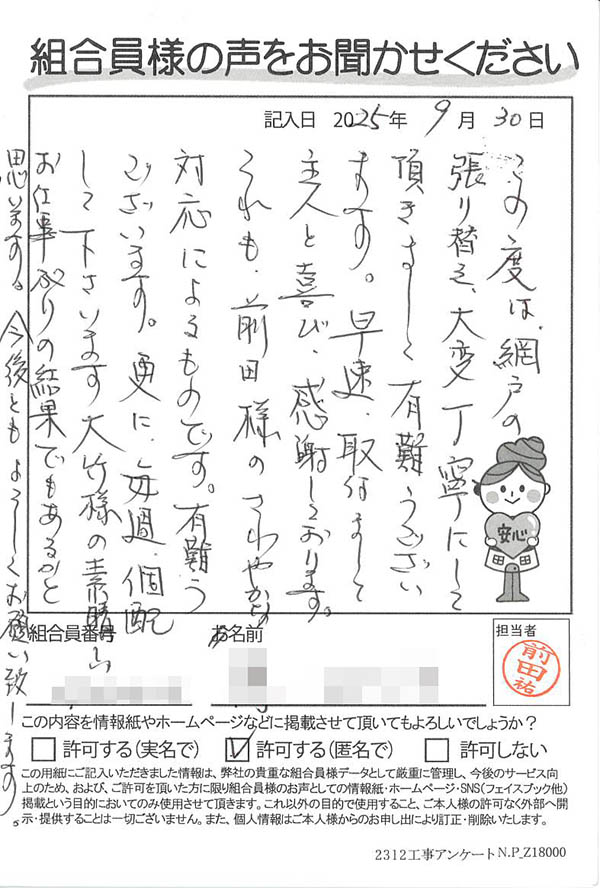 組合員様の声をお聞かせください
記入日 2025年 9月 30日
この度は、網戸の
張り替え、大変丁寧にして
頂きまして有難うござい
ます。早速、取付まして
主人と喜び、感謝しております。
これも、前田様のさわやかな
対応によるものです。有難う
ございます。更に、毎週、個配
して下さいます大竹様の素晴しい
お仕事ぶりの結果でもあるかと
思います。今後ともよろしくお願い致します。
安心
組合員番号
お名前
担当者
前田祐
この内容を情報紙やホームページなどに掲載させて頂いてもよろしいでしょうか?
許可する(実名で) 許可する(匿名で) 許可しない
この用紙にご記入いただきました情報は、弊社の貴重な組合員様データとして厳重に管理し、今後のサービス向
上のため、および、ご許可を頂いた方に限り組合員様のお声としての情報紙・ホームページ・SNS(フェイスブック他)
掲載という目的においてのみ使用させて頂きます。これ以外の目的で使用すること、ご本人様の許可なく外部へ開
示・提供することは一切ございません。また、個人情報はご本人様からのお申し出により訂正・削除いたします。
2312工事アンケートN.P_Z18000